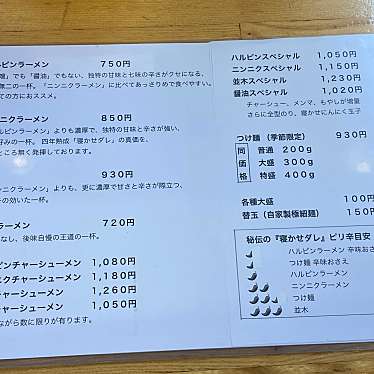 ルピンラーメン 750円
噌」でも「醤油」でもない、独特の甘味と七味の辛さがクセになる、
無二の一杯。『ニンニクラーメン』に比べてあっさりめで食べやすい。
ての方におススメ。
ニクラーメン 850円
ルピンラーメン』よりも濃厚で、独特の甘味と辛さが強い、
好みの一杯。四年熟成「寝かせダレ」の真価を、
ところ無く発揮しております。
930円
ンニクラーメン』よりも、更に濃厚で甘さと辛さが際立つ、
その効いた一杯。
ラーメン 720円
なし、後味自慢の王道の一杯。
ピンチャーシューメン 1,080円
ニクチャーシューメン 1,180円
チャーシューメン 1,260円
チャーシューメン 1,050円
ながら数に限りが有ります。
ハルピンスペシャル 1,050円
ニンニクスペシャル 1,150円
並木スペシャル 1,230円
醤油スペシャル 1,020円
チャーシュー、メンマ、もやしが増量
さらに全型のり、寝かせにんにく玉子
つけ麺（季節限定） 930円
同 普通 200g
価 大盛 300g
格 特盛 400g
各種大盛 100円
替玉（自家製極細麺） 150円
秘伝の『寝かせダレ』ピリ辛目安
ハルピンラーメン 辛味おさえ
つけ麺 辛味おさえ
ハルピンラーメン
ニンニクラーメン
つけ麺
並木